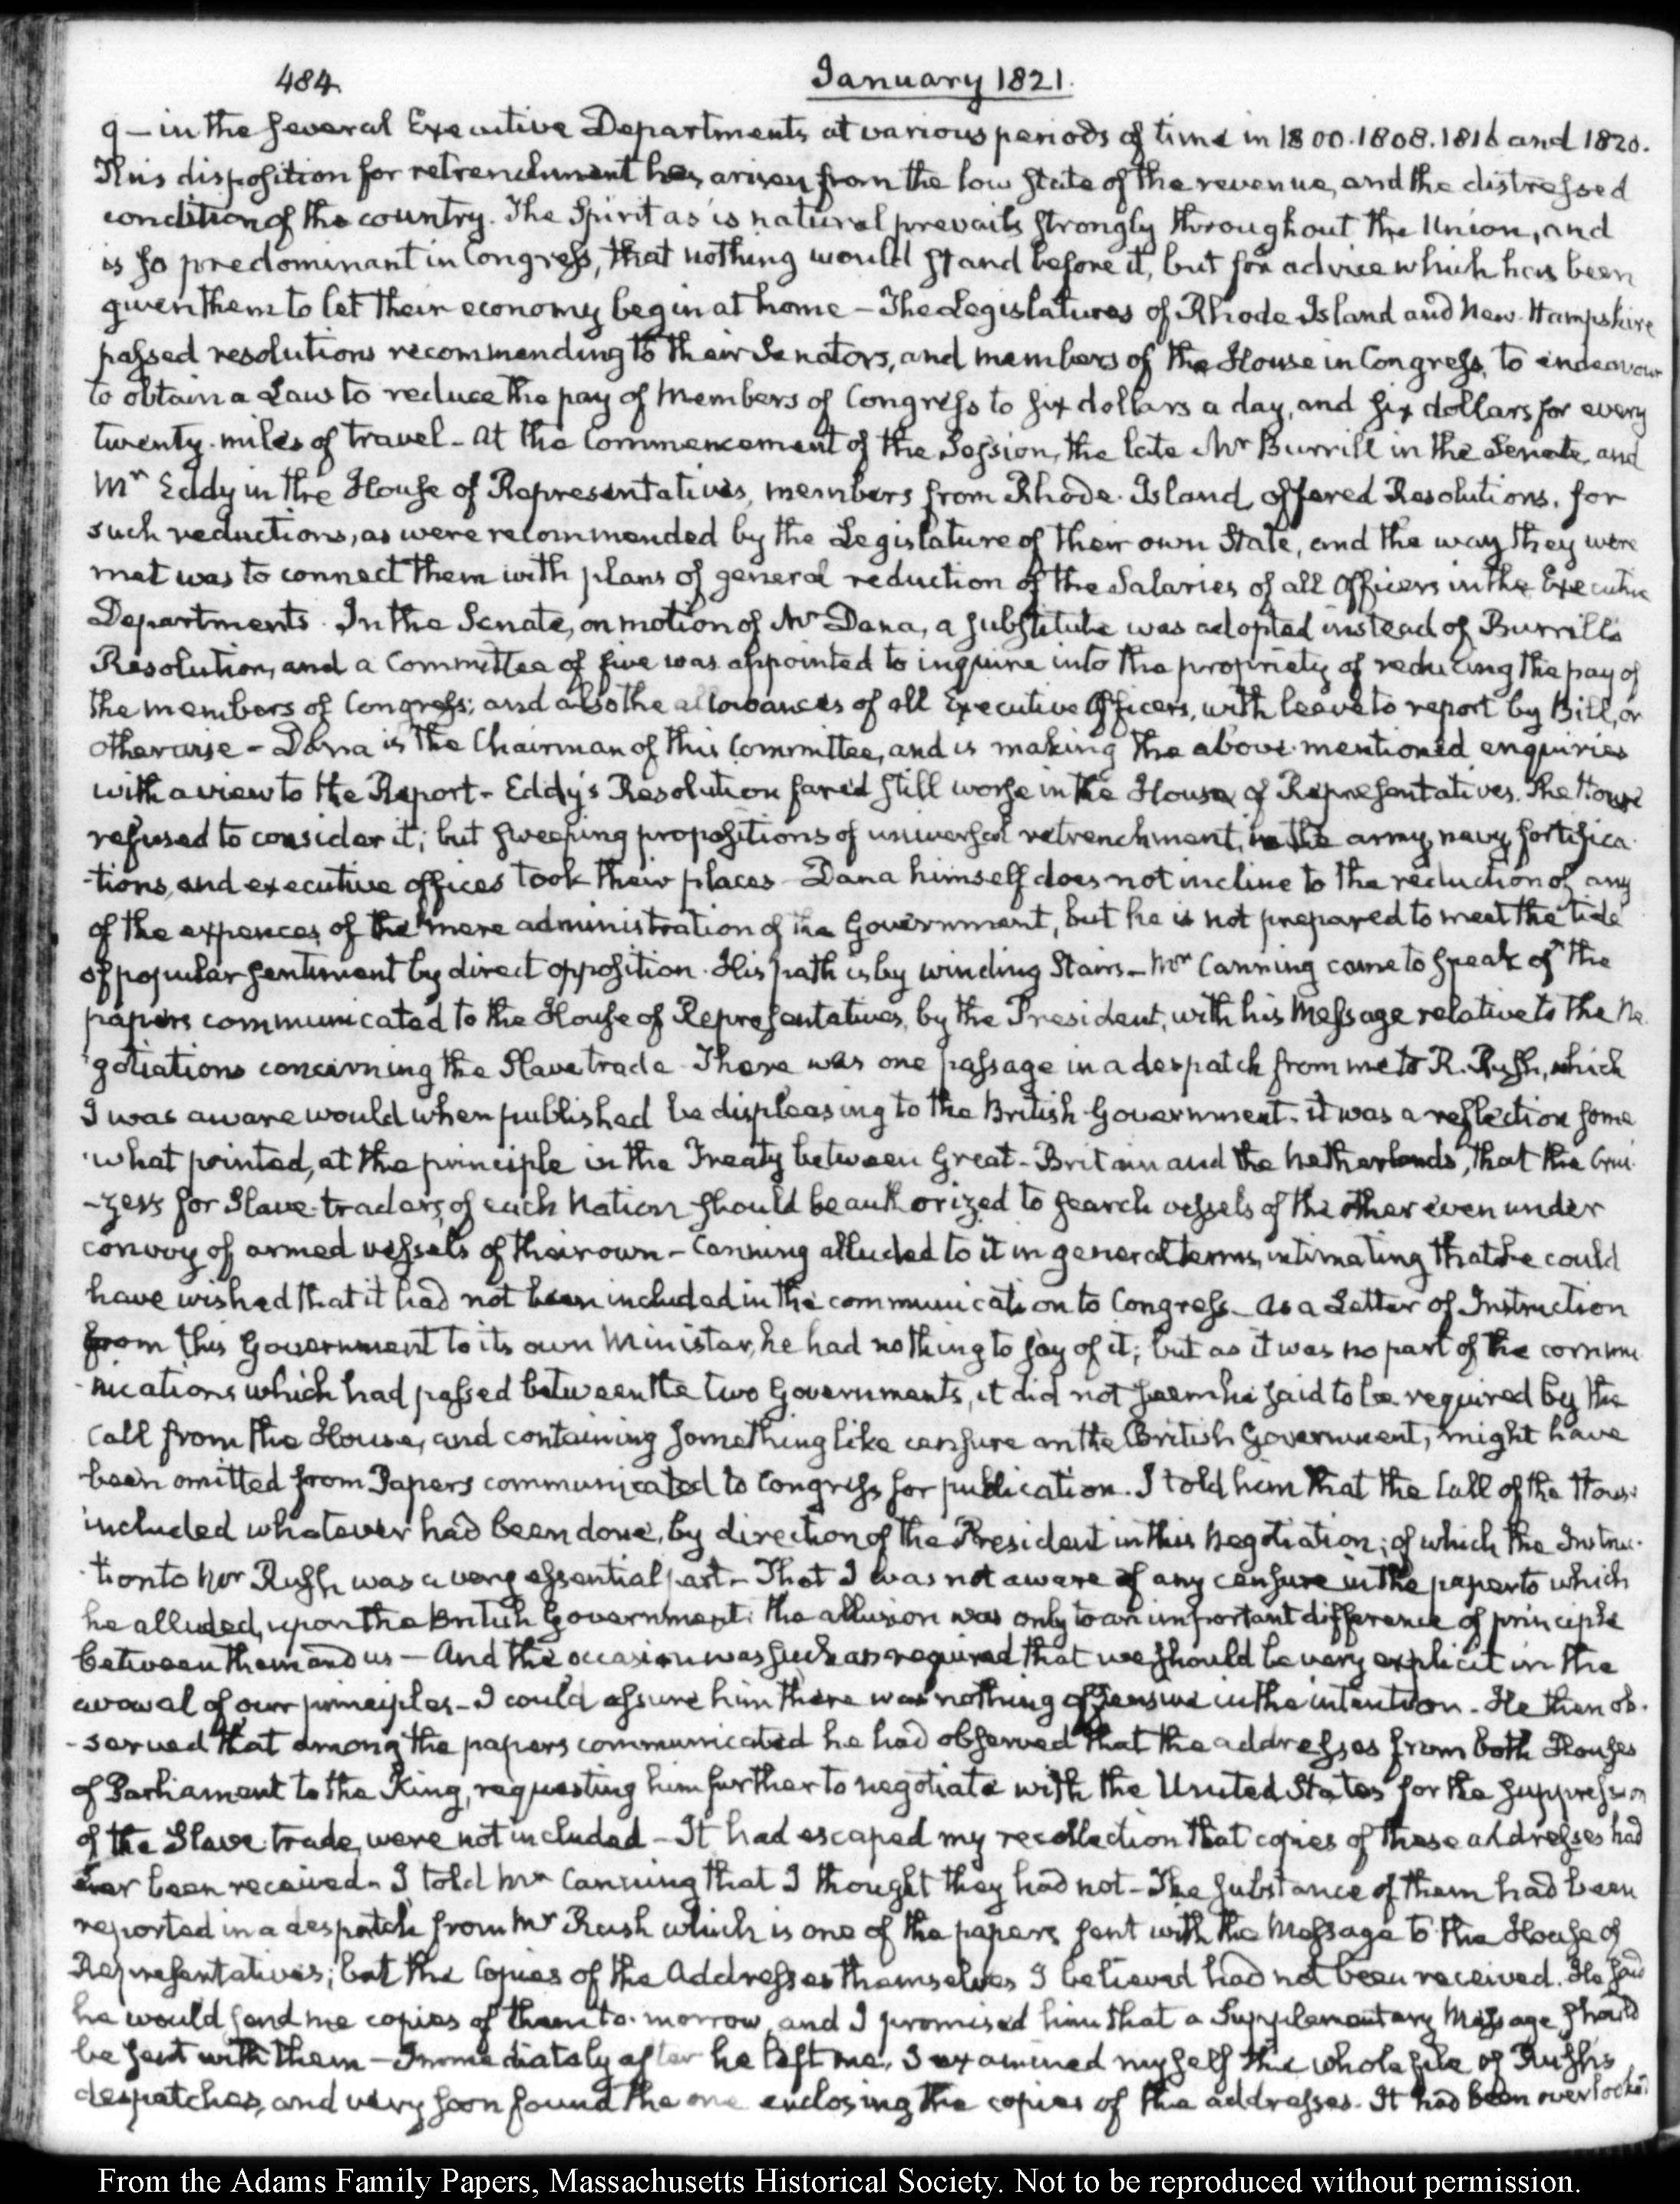 484
January 1821.
9 — in the several Executive Departments at various periods of time in 1800. 1808. 1816 and 1820.
This disposition for retrenchment has arisen from the low state of the revenue, and the distressed
condition of the country. The Spirit as is natural prevails strongly throughout the Union, and
is so predominant in Congress, that nothing would stand before it, but for advice which has been
given them to let their economy begin at home — The Legislatures of Rhode Island and New-Hampshire
passed resolutions recommending to their Senators, and members of the House in Congress, to endeavour
to obtain a Law to reduce the pay of Members of Congress to six dollars a day, and six dollars for every
twenty miles of travel — At the Commencement of the Session, the late Mr Burrill in the Senate, and
Mr Eddy in the House of Representatives, members from Rhode-Island, offered Resolutions, for
such reductions, as were recommended by the Legislature of their own State, and the way they were
met was to connect them with plans of general reduction of the Salaries of all Officers in the Executive
Departments. In the Senate, on motion of Mr Dana, a substitute was adopted instead of Burrill's
Resolution, and a Committee of five was appointed to inquire into the propriety of reducing the pay of
the members of Congress; and also the allowances of all Executive Officers, with leave to report by Bill, or
otherwise — Dana is the Chairman of this Committee, and is making the above-mentioned enquiries
with a view to the Report — Eddy's Resolution fared still worse in the House of Representatives. The House
refused to consider it; but sweeping propositions of universal retrenchment, in the army, navy, fortifica-
-tions, and executive offices took their places — Dana himself does not incline to the reduction of any
of the expences of the mere administration of the Government, but he is not prepared to meet the tide
of popular sentiment by direct opposition. His path is by winding Stairs — Mr Canning came to speak of the
papers communicated to the House of Representatives, by the President, with his Message relative to the Ne-
gotiations concerning the Slave trade. There was one passage in a despatch from me to R. Rush, which
I was aware would when published be displeasing to the British Government. it was a reflection some
what pointed, at the principle in the Treaty between Great-Britain and the Netherlands, that the Crui-
-zers for Slave-traders, of each Nation should be authorized to search vessels of the other even under
convoy of armed vessels of their own — Canning alluded to it in general terms, intimating that he could
have wished that it had not been included in the communication to Congress — As a Letter of Instruction
from this Government to its own Minister, he had nothing to say of it; but as it was no part of the commu
-nications which had passed between the two Governments, it did not seem he said to be required by the
Call from the House, and containing something like censure on the British Government, might have
been omitted from Papers communicated to Congress for publication. I told him that the Call of the House
included whatever had been done, by direction of the President in this Negotiation; of which the Instruc-
-tion to Mr Rush was a very essential part — That I was not aware of any censure in the paper to which
he alluded, upon the British Government: the allusion was only to an important difference of principle
between them and us — And the occasion was such as required that we should be very explicit in the
avowal of our principles — I could assure him there was nothing offensive in the intention — He then ob-
-served that among the papers communicated he had observed that the addresses from both Houses
of Parliament to the King, requesting him further to negotiate with the United States for the suppression
of the Slave-trade, were not included — It had escaped my recollection that copies of these addresses had
ever been received — I told Mr Canning that I thought they had not — The substance of them had been
reported in a despatch from Mr Rush which is one of the papers sent with the Message to the House of
Representatives; but the Copies of the Addresses themselves I believed had not been received. He said
he would send me copies of them to-morrow, and I promised him that a Supplementary Message should
be sent with them — Immediately after he left me, I examined myself the whole file of Rush's
despatches, and very soon found the one enclosing the copies of the addresses. It had been overlooked
From the Adams Family Papers, Massachusetts Historical Society. Not to be reproduced without permission.